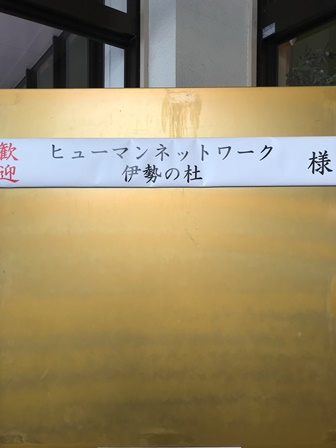 歓迎
ヒューマンネットワーク
伊勢の杜
様